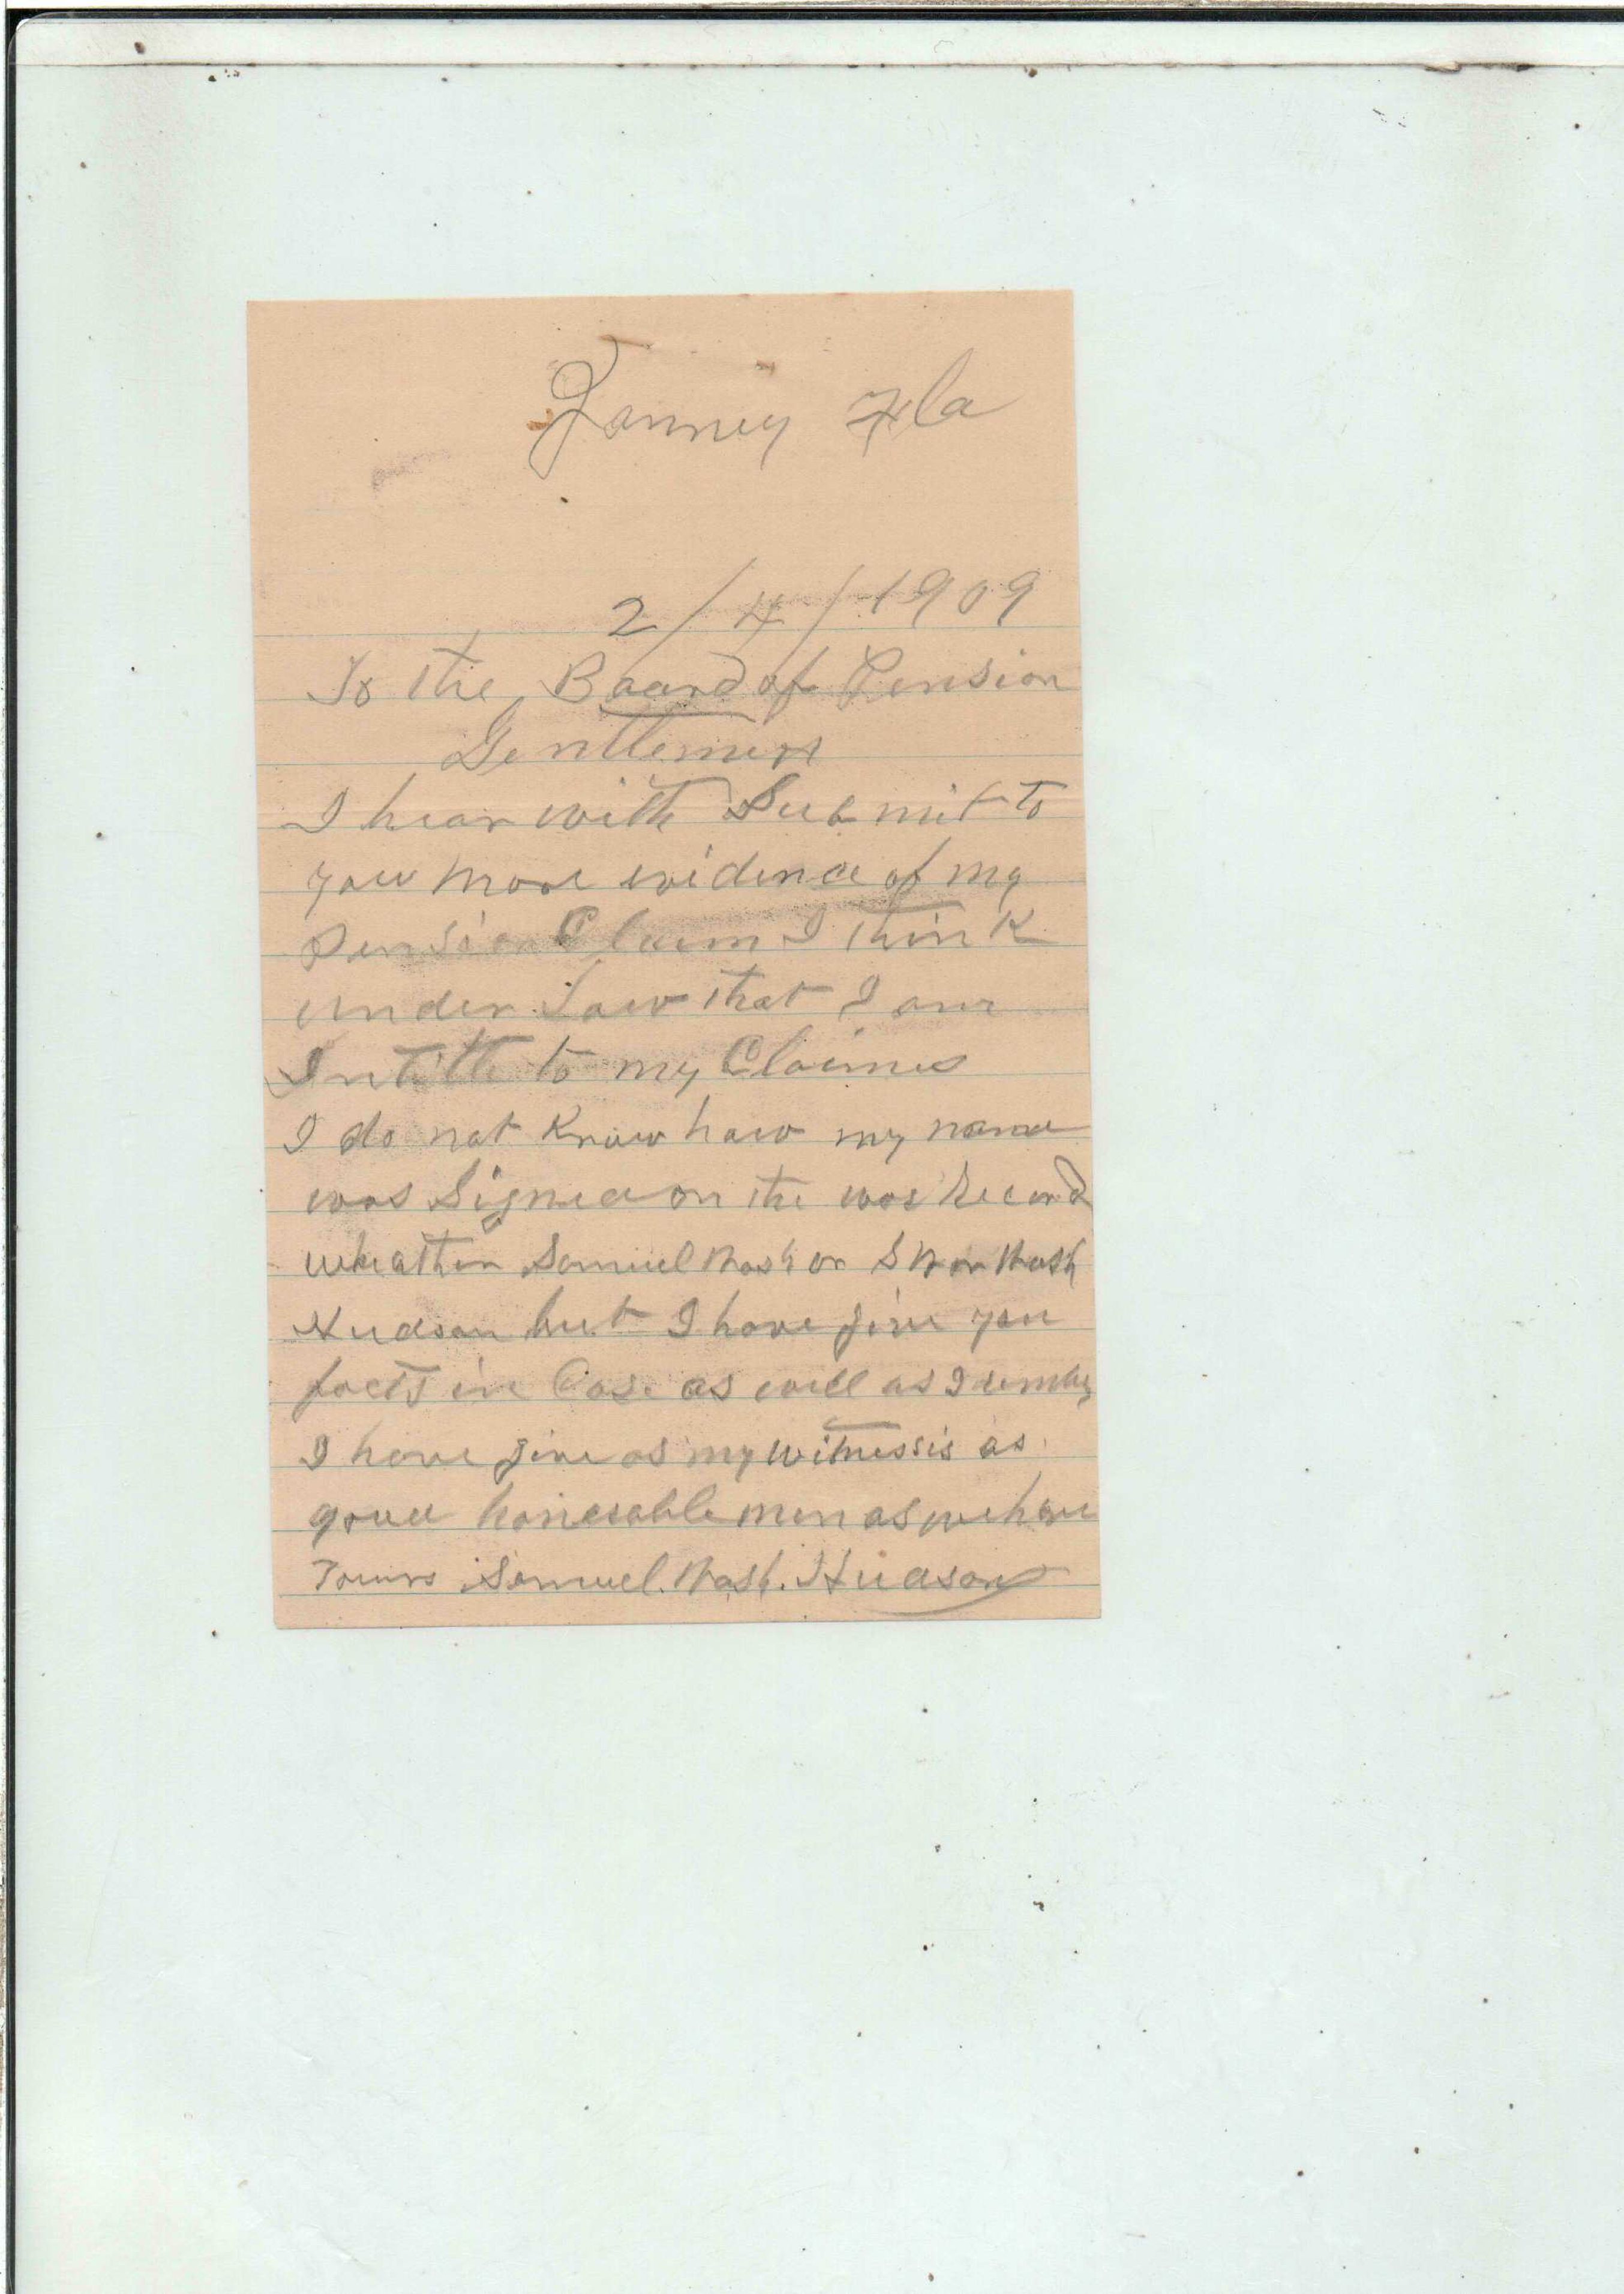 Fla
2/4/1909
To the Board of Pension
Gentlemen
I hear with Submit to
you more evidence of my
Pension Claim I think
under Law that I am
Intitle to my Claimes
I do not Know how my name
was Signed on the war Record
wheather Samuel Nash or S N or Nash
Hudson but I have give you
facts in Case as well as I
I have give as my witnessis as
good honerable men as we have
Yours Samuel. Nash. Hudson